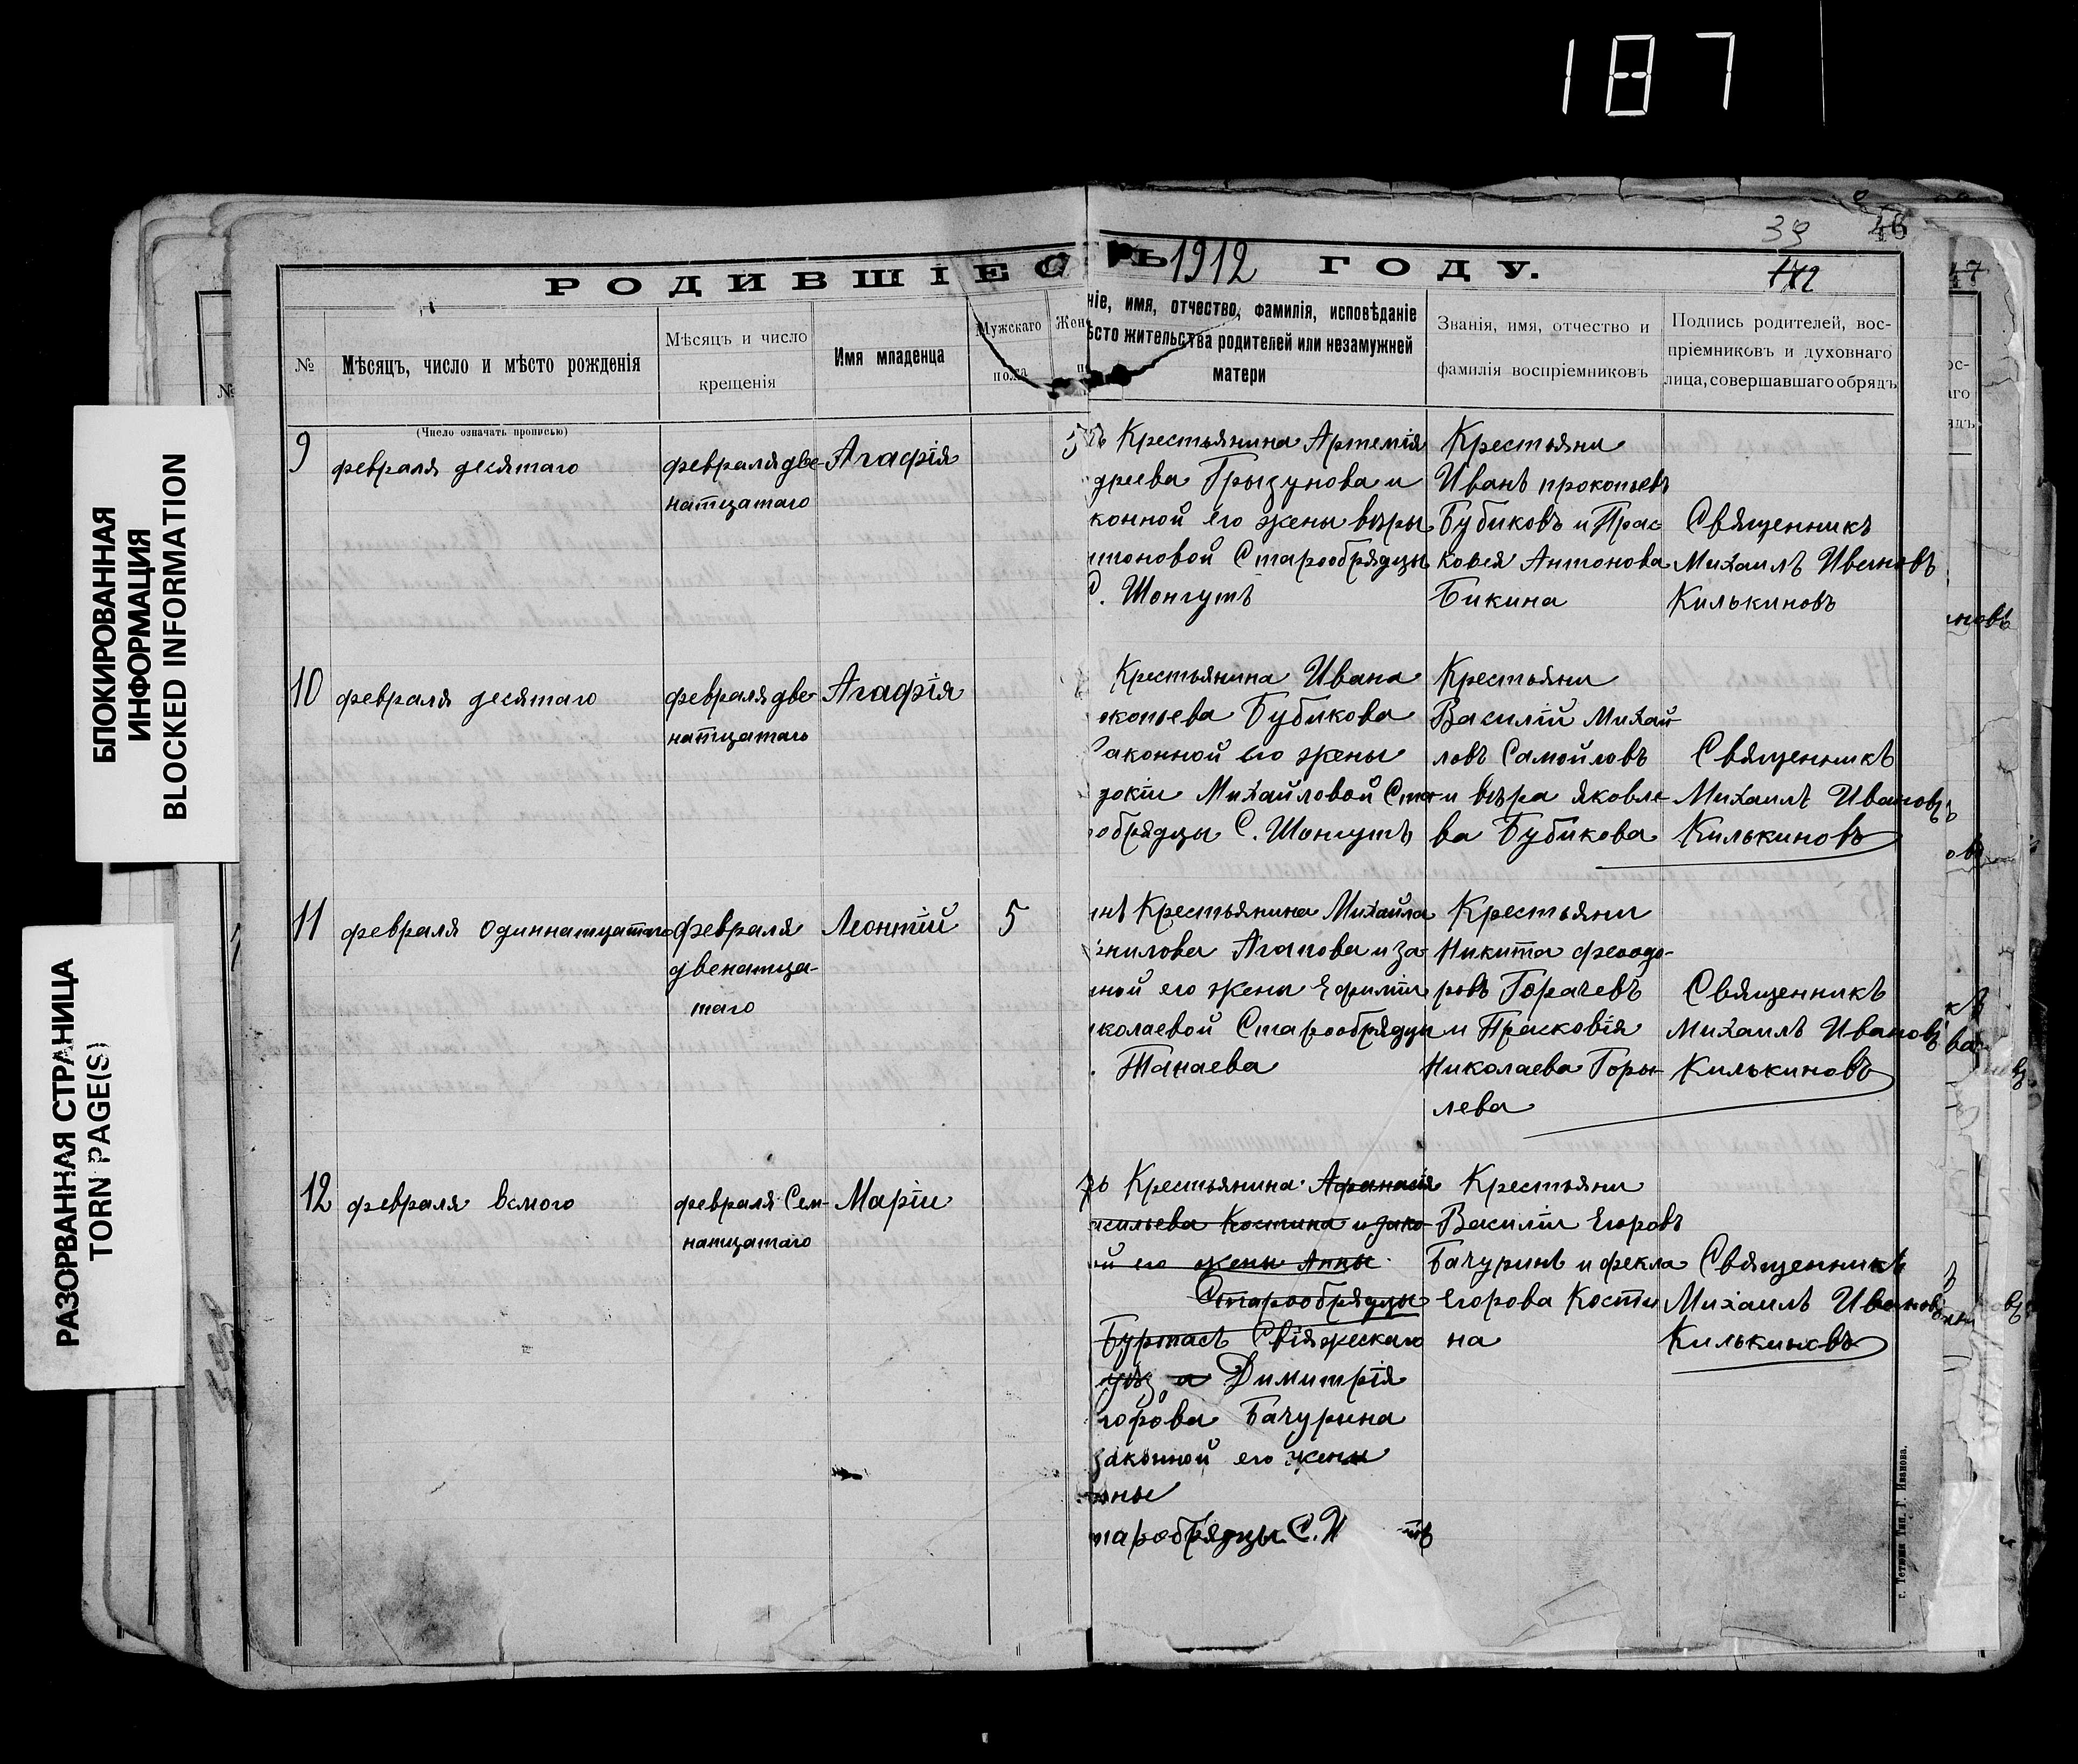 187
БЛОКИРОВАННАЯ
ИНФОРМАЦИЯ
BLOCKED INFORMATION
РАЗОРВАННАЯ СТРАНИЦА
TORN PAGE(S)
39
РОДИВШІЕС Ь 1912 ГОДУ.
№
Мѣсяцъ, число и мѣсто рожденія
Мѣсяцъ и число
крещенія
Имя младенца
Мужскаго
пола
Жен
ніе, имя, отчество, фамилія, исповѣданіе
ѣсто жительства родителей или незамужней
матери
Званія, имя, отчество и
фамилія воспріемниковъ
Подпись родителей, вос-
пріемниковъ и духовнаго
лица, совершавшаго обрядъ
(Число означать прописью)
9
февраля десятаго
февраля две-
натцатаго
Агафія
5
Крестьянина Артемія
дреева Грызунова и
конной его жены веры
тоновой Старообрядцы
С. Шонгутѣ
Крестьяни
Иванъ прокопьевъ
Бубиковъ и Прас
ковея Антонова
Бикина
Священникъ
Михаилъ Ивановъ
Килькиновъ
10
февраля десятаго
февраля две-
натцатаго
Агафія
Крестьянина Ивана
окопьева Бубикова
Законной его жены
докіи Михайловой Ста-
обрядцы С. Шонгутъ
Крестьяни
Василій Михай
ловъ Самойловъ
и вѣра яковле-
ва Бубикова
Священникъ
Михаилъ Ивановъ
Килькиновъ
11
февраля одиннатцатаго
февраля
двенатца-
таго
Леонтій
5
нъ Крестьянина Михайла
нилова Агапова и за-
ной его жены Ефиміи
колаевой Старообрядцы
Танаева
Крестьяни
Никита феодо-
ровъ Горачевъ
и Прасковія
Николаева Горы-
лева
Священникъ
Михаилъ Ивановъ
Килькиновъ
12
февраля всмого
февраля Сем-
натцатаго
Маріи
Крестьянина Афанасія
сильева Костина и зако-
й его жены Анны
Старообрядцы
Буртасъ Свіяжскаго
уѣз и Димитрія
горова Бачурина
законной его жены
нны
тарообрядцы С.
Крестьяни
Василіи Егоровъ
Бачуринъ и фекла
Егорова Кости
на
Священникъ
Михаилъ Ивановъ
Килькиновъ
г. Тетюши Тип. Г. Иванова.